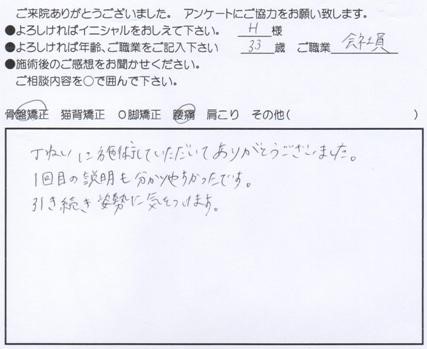 ご来院ありがとうございました。 アンケートにご協力をお願い致します。
●よろしければイニシャルをおしえて下さい。 H 様
●よろしければ年齢、ご職業をご記入下さい 33 歳 ご職業 会社員
●施術後のご感想をお聞かせください。
ご相談内容を○で囲んで下さい。
骨盤矯正 猫背矯正 O脚矯正 腰痛 肩こり その他( )
丁ねいに施術していただいてありがとうございました。
1回目の説明も分かりやすかったです。
引き続き姿勢に気をつけます。